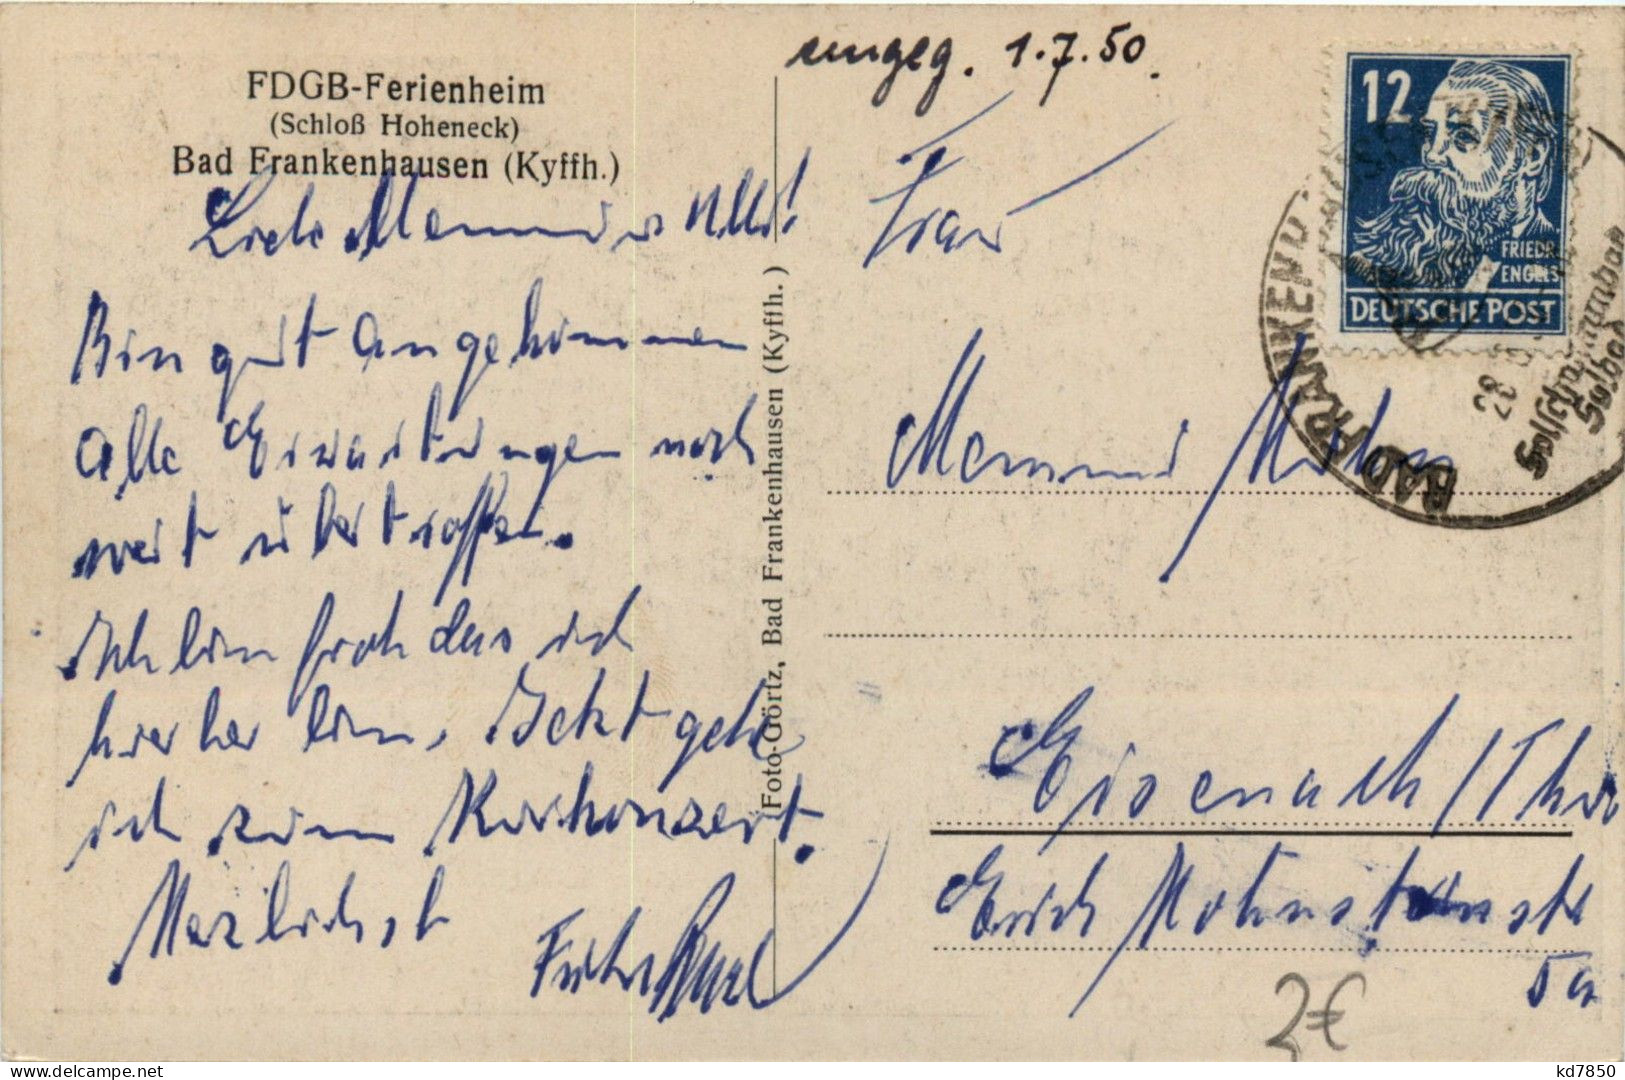 FDGB-Ferienheim
(Schloß Hoheneck)
Bad Frankenhausen (Kyffh.)
Bin gut angekommen
alle Erwartungen noch
weit übertroffen.
Ich bin froh das ich
hierher bin. Jetzt gehe
ich zum Kurkonzert.
Herzlichst
Foto-Görtz, Bad Frankenhausen (Kyffh.)
eingeg. 1.7.50.
12
FRIEDR.
ENGELS
DEUTSCHE POST
BAD FRANKENH
Solbad
Frau
Eisenach / Thür
Erich
5a
2€
kd7850